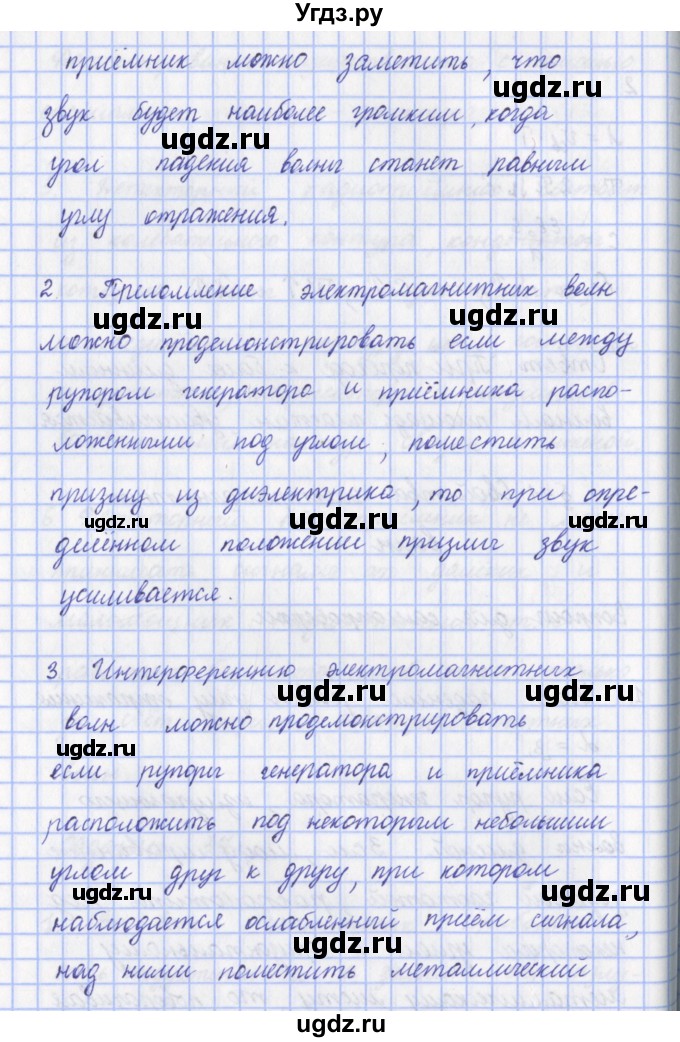 Угдз.ру
приёмник можно заметить, что
ugdz.ru
звук будет наиболее громким, когда
ugdz.ru
угол падения волны станет равным
углу отражения.
ugdz.ru
2. Преломление электромагнитных волн
ugdz.ru ugdz.ru
можно продемонстрировать если между
рупором генератора и приёмника распо-
ugdz.ru
ложенными под углом, поместить
призму из диэлектрика, то при опре-
ugdz.ru ugdz.ru ugdz.ru
делённом положении призмы звук
усиливается.
3 Интерференцию электромагнитных
ugdz.ru ugdz.ru
волн можно продемонстрировать
ugdz.ru
если рупоры генератора и приёмника
расположить под некоторым небольшим
углом друг к другу, при котором
ugdz.ru
наблюдается ослабленный приём сигнала,
ugdz.ru
над ними поместить металлический
ugdz.ru